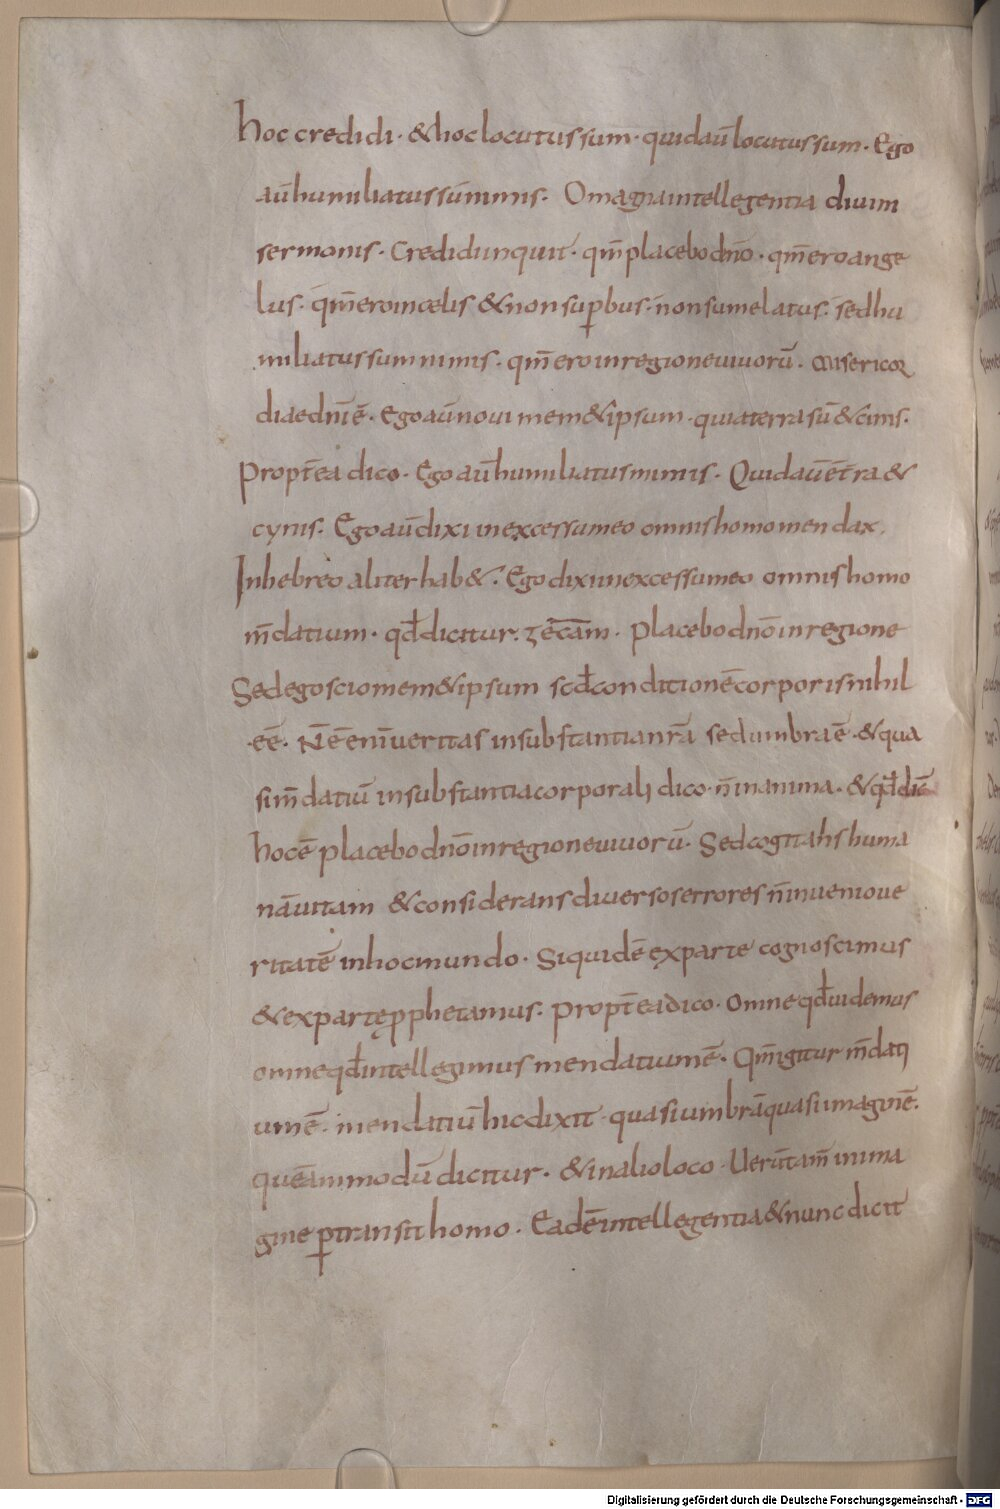 hoc credidi · & hoc locutus sum · quid aū locutus sum · Ego
aū humiliatus sū nimis · O magna intellegentia divini
sermonis · Credidi inquit · qm̄ placebo dn̄o · qm̄ ero ange
lus · qm̄ ero in cælis & non suꝑbus · non sum elatus · sed hu
miliatus sum nimis · qm̄ ero in regione vivorū · Misericor
dia ed dn̄i ē · Ego aū novi mem&ipsum · quia terra sū & cinis ·
Propt̄ea dico · Ego aū humiliatus nimis · Quid aū ēt̄ra &
cynis · Ego aū dixi in excessu meo omnis homo mendax ·
In hebreo aliter hab& · Ego dixi in excessu meo omnis homo
m̄datium · qd̄ dicitur · zēcām · placebo dn̄o in regione
Sed ego scio mem&ipsum scd̄ conditionē corporis nihil
ēē · N̄ ē eni ueritas in substantia nr̄a sed umbra ē · & qua
si m̄datiū in substantia corporali dico n̄ in anima · & qd̄ dic̄
hoc ē placebo dn̄o in regione vivorū · Sed cogitans huma
nā vitam & considerans diversos errores n̄ invenio ve
ritatē in hoc mundo · Siquidē ex parte cognoscimus
& ex parte ꝓphetamus · propt̄ea dico · Omne qd̄ videmus
omne qd̄ intellegimus mendatium ē · Qm̄ igitur m̄dati
um ē · mendatiū hic dixit · quasi umbrā quasi imaginē ·
quēammodū dicitur · & in alio loco · Uerūtam̄ in ima
gine ꝑtransit homo · Eadē intellegentia & nunc dicit
Digitalisierung gefördert durch die Deutsche Forschungsgemeinschaft - DFG